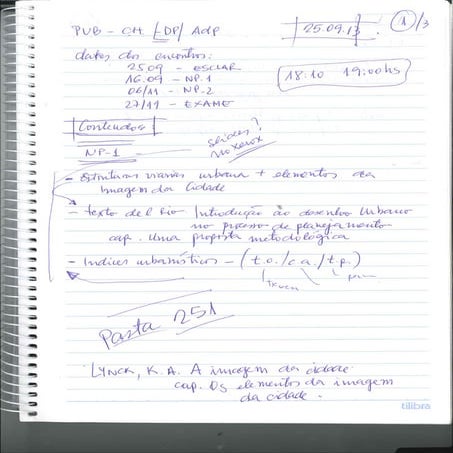 PUB - CH /DP/ AdP
25.09.13
1/3
datas dos encontros:
25.09 - ESCLAR
16.09 - NP.1
06/11 - NP-2
27/11 - EXAME
18:10 19:00hs
Conteúdos
slides?
no xerox
NP-1
- Estruturas viárias urbana + elementos da
imagem da cidade
- texto del Rio - Introdução ao desenho Urbano
no processo de planejamento
cap. Uma proposta metodológica
- Indices urbanísticos - (t.o./c.a./t.p.)
Pasta 251
LYNCH, K. A. A imagem da cidade.
cap. Os elementos da imagem
da cidade.
tilibra